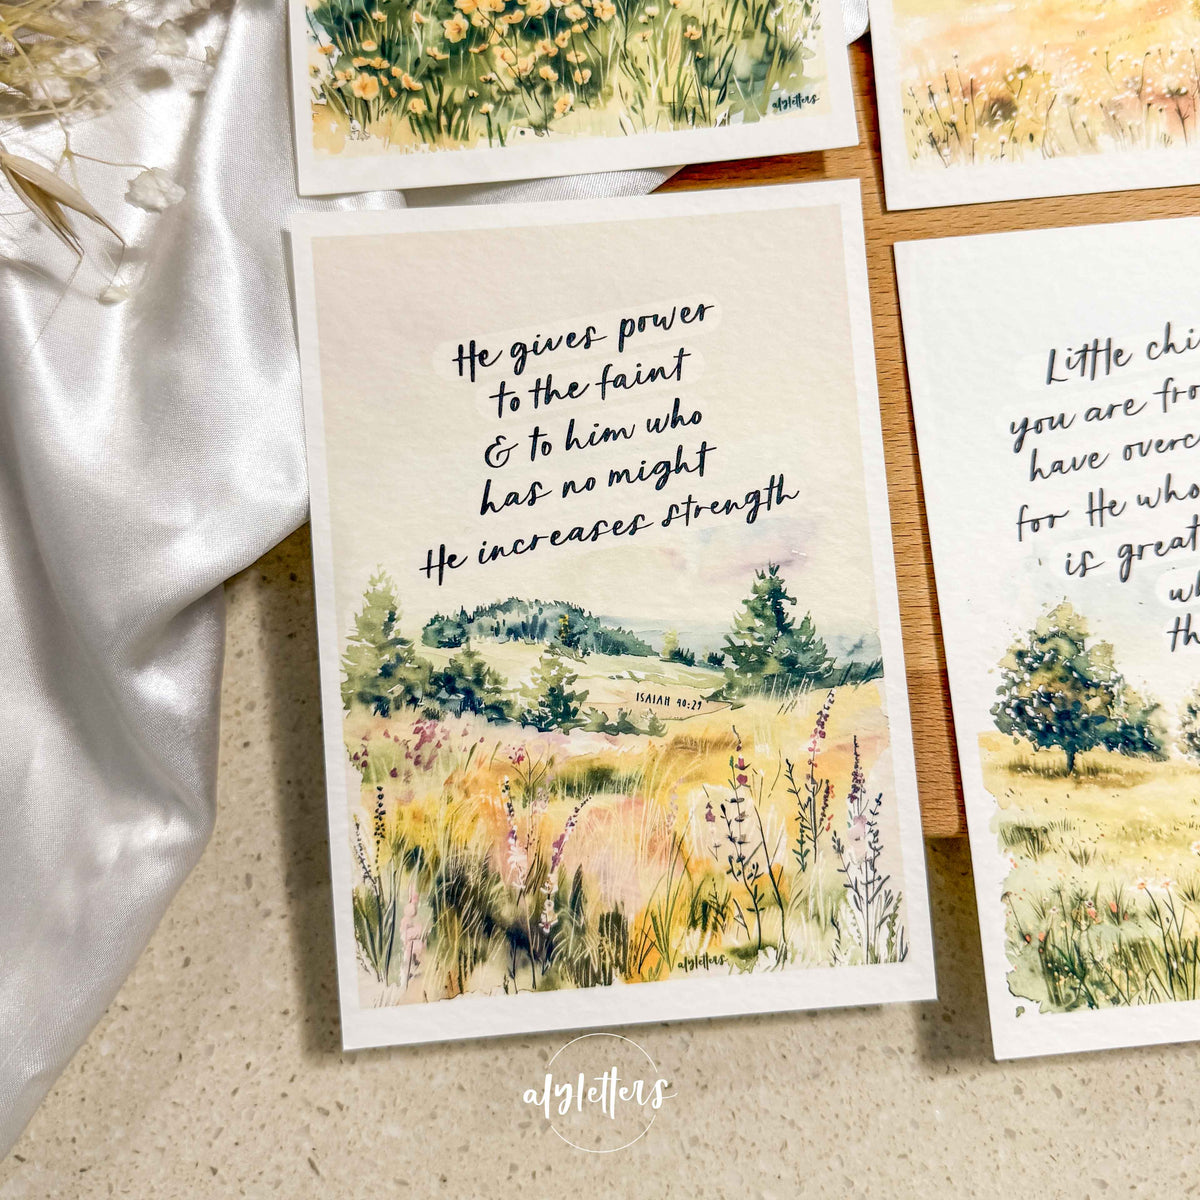 alyletters
He gives power
to the faint
& to him who
has no might
He increases strength
ISAIAH 40:29
alyletters
Little
you are
have
for He who
is
alyletters